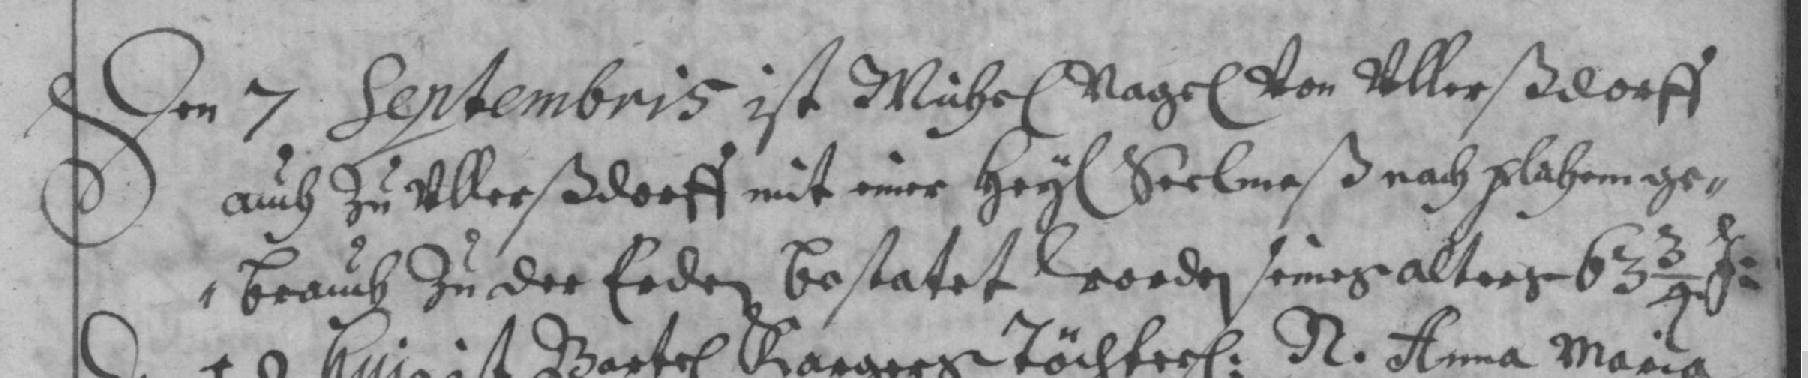 Den 7 Septembris ist Michel Nagel Von Ullerßdorff
auch Zu Ullerßdorff mit einer Heyl Seelmeß nach ge-
brauch Zu der Erden bestatet worden seines alters 63 3/4 J:
ist Bartel Kargers Töchterl: N. Anna Maria